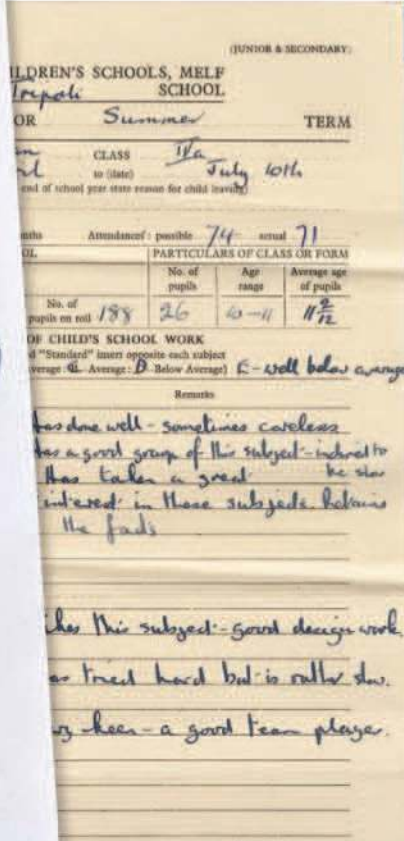 (JUNIOR & SECONDARY)
ILDREN'S SCHOOLS, MELF
Tripoli SCHOOL
OR Summer TERM
CLASS IVa
to (date) July 10th
end of school year state reason for child leaving)
nths Attendances: possible 74 actual 71
OL PARTICULARS OF CLASS OR FORM
No. of pupils Age range Average age of pupils
No. of pupils on roll 188 26 10-11 11 2/12
OF CHILD'S SCHOOL WORK
d "Standard" insert opposite each subject
verage C. Average: D. Below Average) E-well below average
Remarks
has done well - sometimes careless
has a good grasp of this subject - inclined to be slow
Has taken a great
interest in these subjects. Retains
the facts
ikes this subject - good design work.
as tried hard but is rather slow.
ry keen - a good team player.